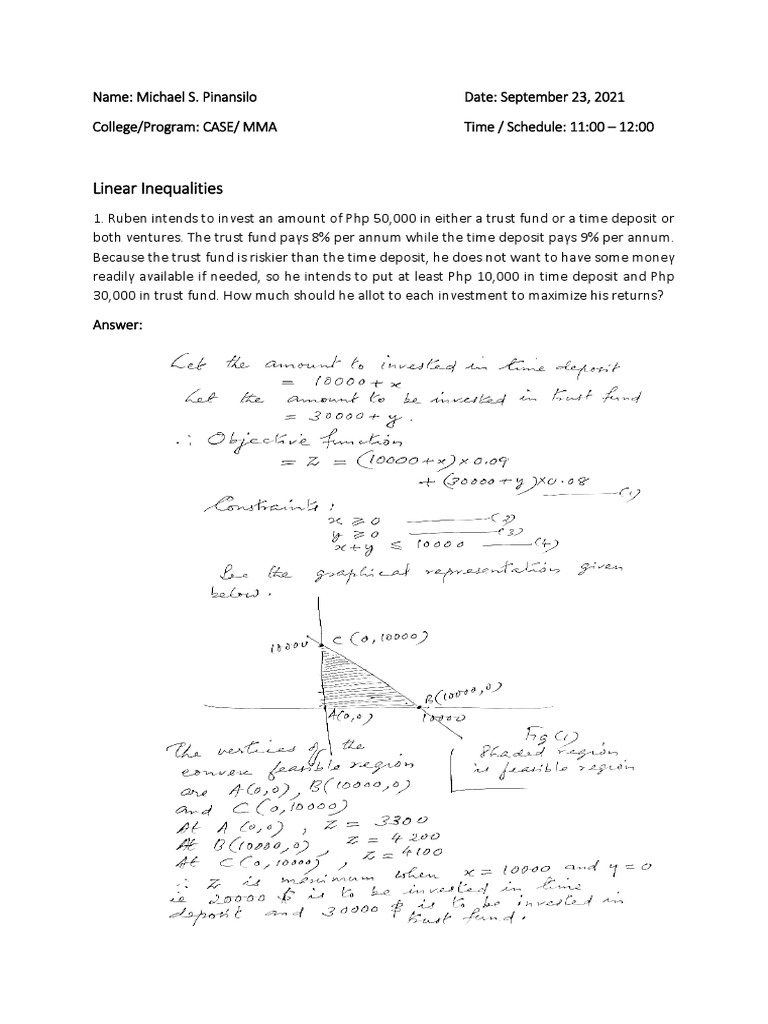 Name: Michael S. Pinansilo Date: September 23, 2021
College/Program: CASE/ MMA Time / Schedule: 11:00 – 12:00
Linear Inequalities
1. Ruben intends to invest an amount of Php 50,000 in either a trust fund or a time deposit or
both ventures. The trust fund pays 8% per annum while the time deposit pays 9% per annum.
Because the trust fund is riskier than the time deposit, he does not want to have some money
readily available if needed, so he intends to put at least Php 10,000 in time deposit and Php
30,000 in trust fund. How much should he allot to each investment to maximize his returns?
Answer:
Let the amount to invested in time deposit
= 10000 + x
Let the amount to be invested in trust fund
= 30000 + y.
∴ Objective function
= Z = (10000+x) x 0.09
+ (30000 + y) x 0.08 ——(1)
Constraints:
x ≥ 0 ——(2)
y ≥ 0 ——(3)
x+y ≤ 10000 ——(4)
See the graphical representation given
below.
10000 C (0,10000)
B(10000,0)
A(0,0) 10000
Fig (1)
Shaded region
is feasible region
The vertices of the
convex feasible region
are A(0,0), B(10000,0)
and C(0,10000)
At A (0,0), Z = 3300
At B(10000,0), Z = 4200
At C(0,10000), Z = 4100
∴ Z is maximum when x = 10000 and y = 0
ie 20000 $ is to be invested in time
deposit and 30000 $ is to be invested in
trust fund.